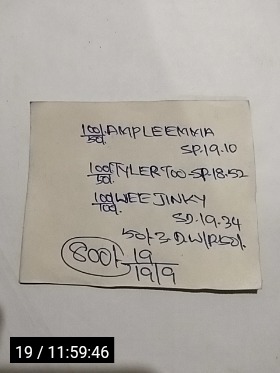 100/. AMPLEEMMIA
50/.
SP.19.10
100/. TYLER TOO-SP.18.52
50/.
100/. WEE JINKY
100/.
SP.19.34
50/- 3 D.W/R50/.
800/- 19
19/9
19 / 11:59:46